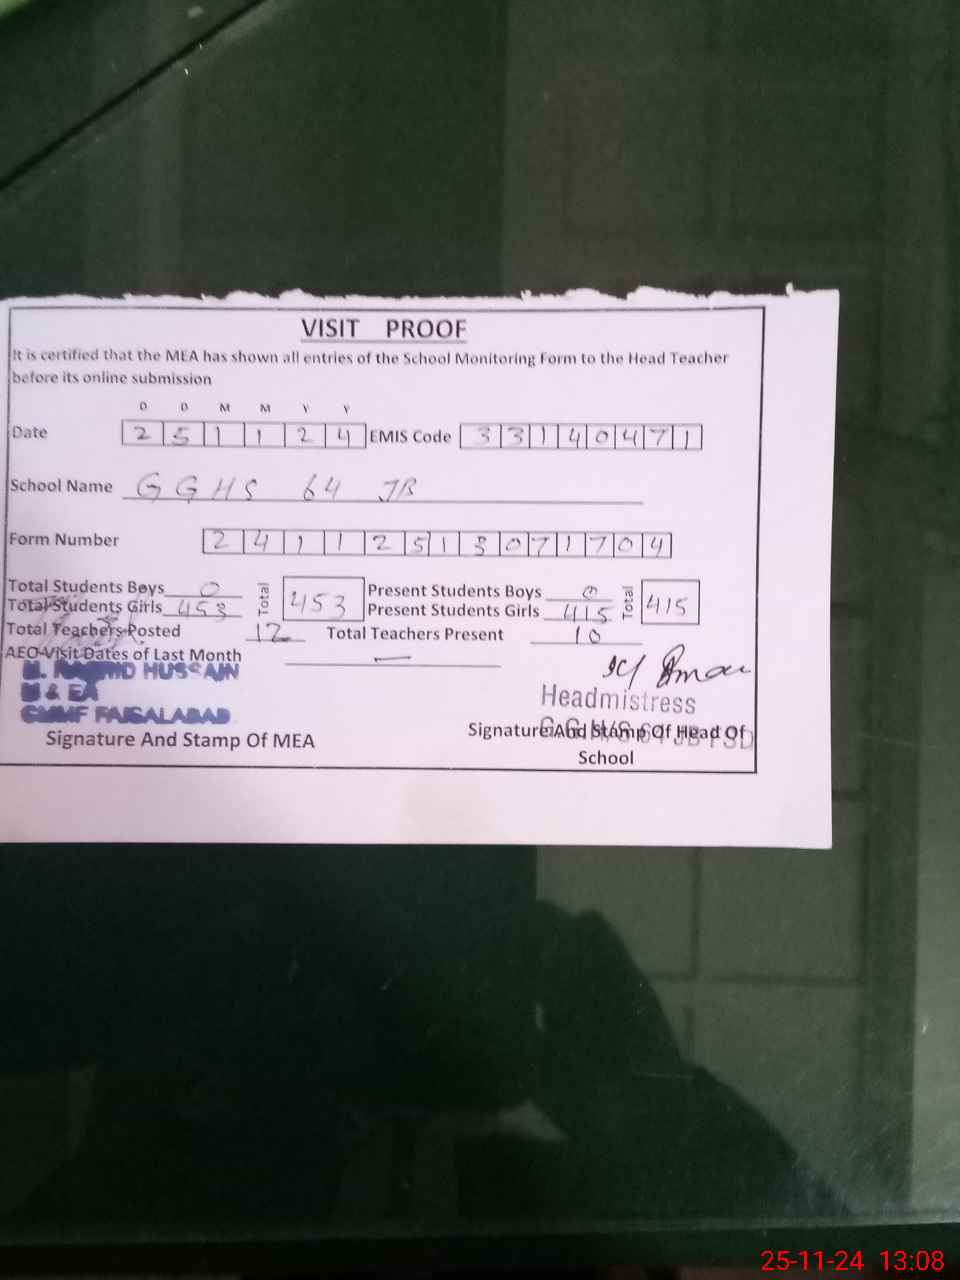 VISIT PROOF
It is certified that the MEA has shown all entries of the School Monitoring Form to the Head Teacher
before its online submission
D D M M Y Y
Date 2 5 1 1 2 4 EMIS Code 3 3 1 4 0 4 7 1
School Name GGHS 64 JB
Form Number 2 4 1 1 2 5 1 3 0 7 1 7 0 4
Total Students Boys 0 Total 453 Present Students Boys 0 Total 415
Total Students Girls 453 Present Students Girls 415
Total Teachers Posted 12 Total Teachers Present 10
AEO Visit Dates of Last Month —
HUSSAIN
M & EA
CMMF FAISALABAD
Headmistress
G.G.H/S 64 JB FSD
Signature And Stamp Of MEA
Signature And Stamp Of Head Of
School
25-11-24 13:08